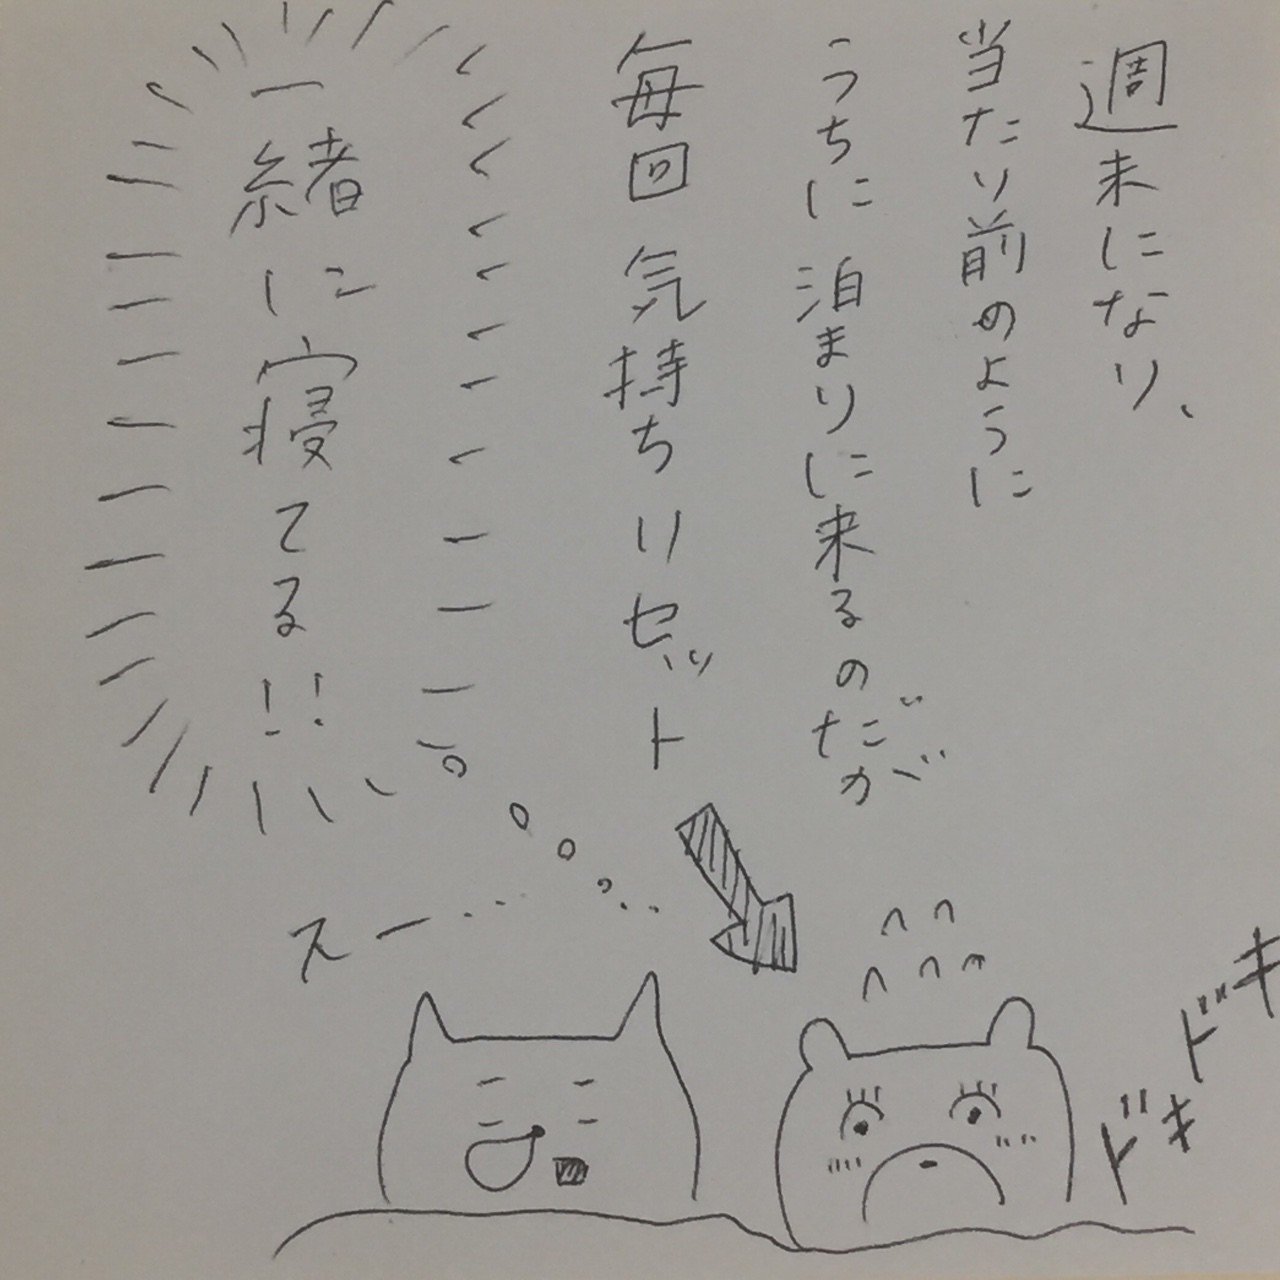 週末になり、
当たり前のように
うちに泊まりに来るのだが
毎回気持ちリセット
一緒に寝てる!!
スー…
ドキ
ドキ